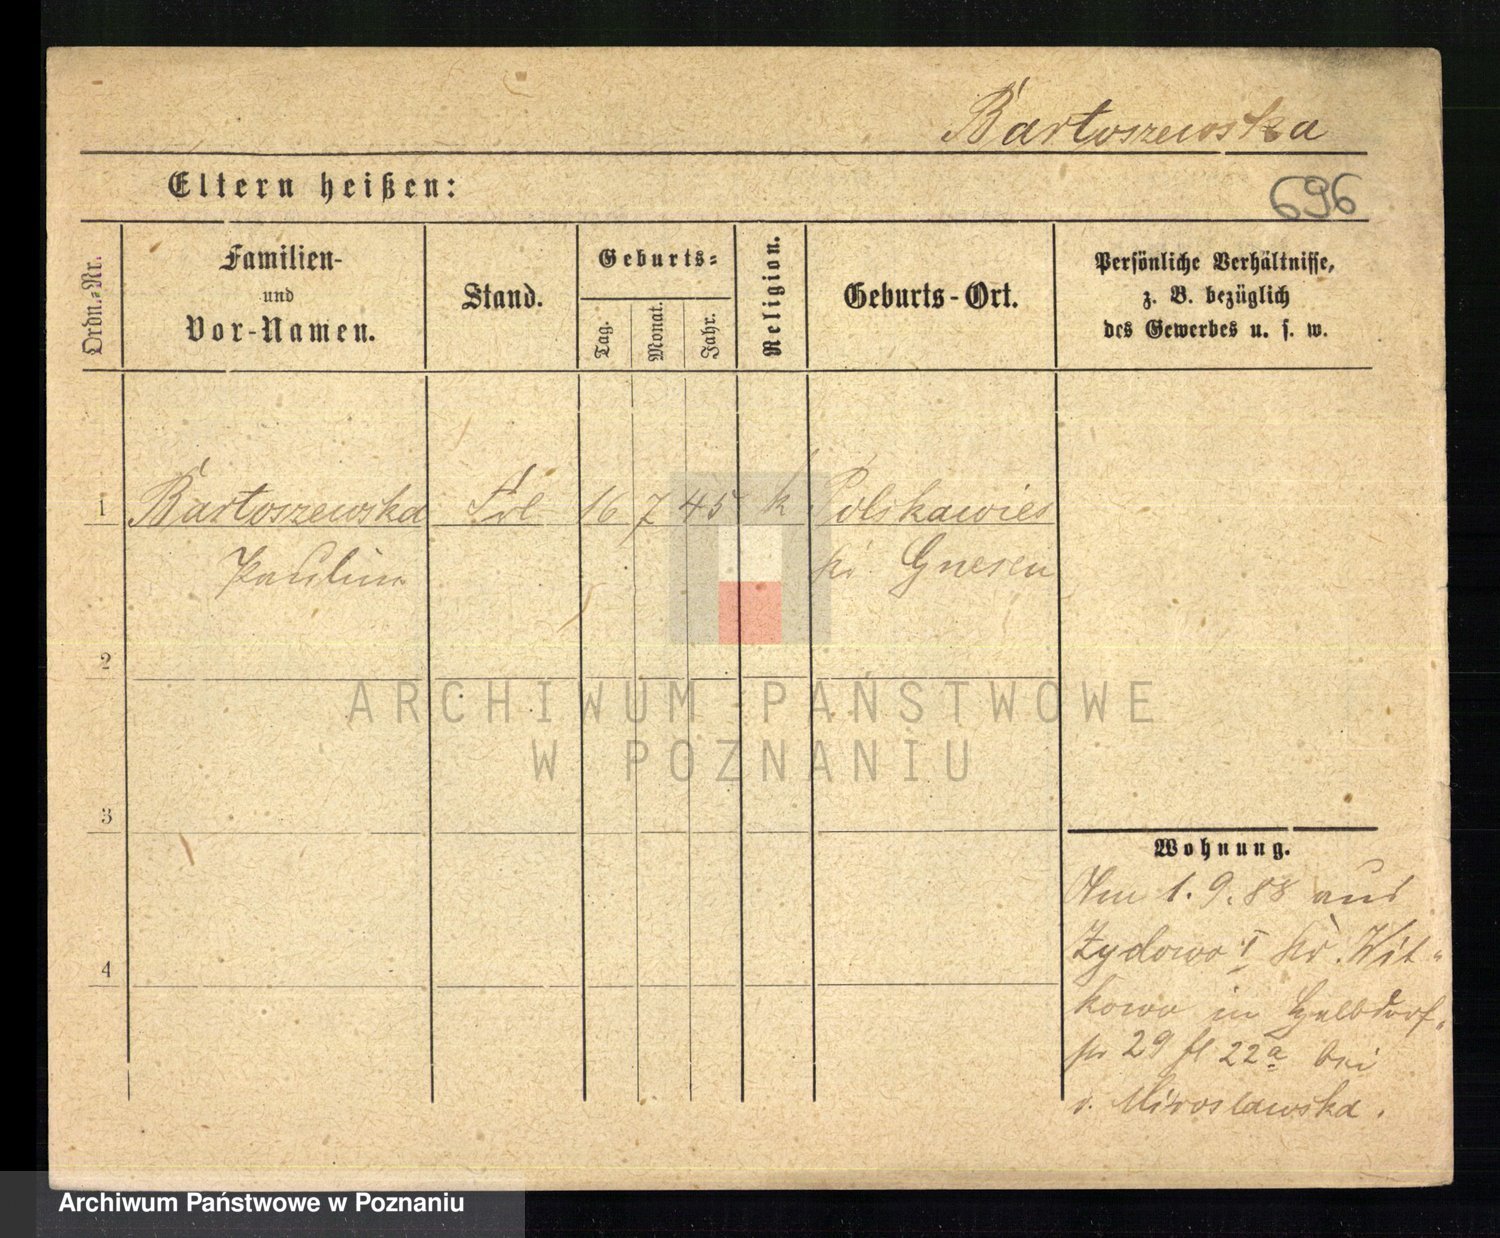 Bartoszewska
Eltern heißen:
696
Ordn.-Nr.
Familien-
und
Vor-Namen.
Stand.
Geburts-
Tag.
Monat.
Jahr.
Religion.
Geburts-Ort.
Persönliche Verhältnisse,
z. B. bezüglich
des Gewerbes u. s. w.
1 Bartoszewska Frl 16 7 45 k Polskawies
Paulina Gnesen
2
ARCHIWUM PAŃSTWOWE
W POZNANIU
3
Wohnung.
Am 1.9.88 aus
Zydowo I Kr. Wit-
4
kowo in Halbdorf-
29 22a bei
v. Miroslawska.
Archiwum Państwowe w Poznaniu